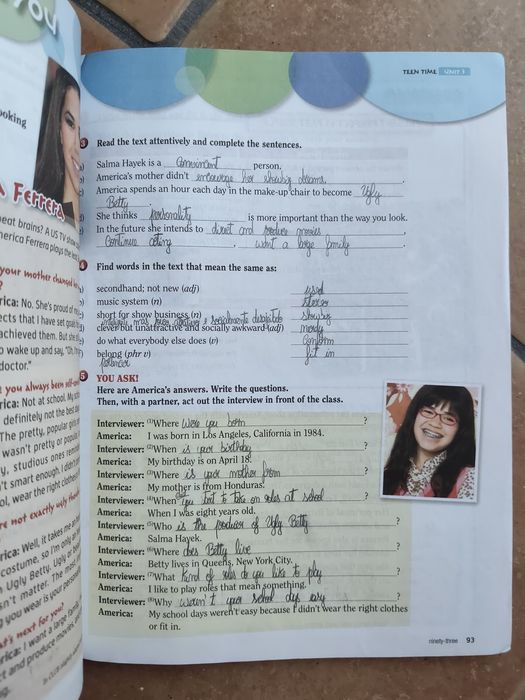 you
ooking
Ferrera
eat brains? A US TV show
merica Ferrera plays the lead
your mother changed
rica: No. She's proud of m
ects that I have set
achieved them. But she
o wake up and say, "Oh, I'm
doctor."
you always been self-
rica: Not at school. My sch
definitely not the best da
The pretty, popular girls
wasn't pretty or popular.
y, studious ones
t smart enough. I didn't
ol, wear the right clothes
re not exactly ugly
rica: Well, it takes me an
costume, so I'm only an
Ugly Betty. Ugly or
sn't matter. The most
g you wear is your personal
at's next for you?
rica: I want a large family
ct and produce movies, and
TEEN TIME UNIT 3
3 Read the text attentively and complete the sentences.
Salma Hayek is a Convincent person.
America's mother didn't encourage her showbiz dreams.
America spends an hour each day in the make-up chair to become Ugly
Betty.
She thinks personality is more important than the way you look.
In the future she intends to direct and produce movies,
Continue acting, want a large family.
4 Find words in the text that mean the same as:
secondhand; not new (adj) used
music system (n) stereo
short for show business (n) showbiz
clever but unattractive and socially awkward (adj) nerdy
do what everybody else does (v) conform
belong (phr v) fit in
pertencer
5 YOU ASK!
Here are America's answers. Write the questions.
Then, with a partner, act out the interview in front of the class.
Interviewer: (1)Where Were you born ?
America: I was born in Los Angeles, California in 1984.
Interviewer: (2)When is your birthday ?
America: My birthday is on April 18.
Interviewer: (3)Where is your mother from ?
America: My mother is from Honduras.
Interviewer: (4)When did you start to take on roles at school ?
America: When I was eight years old.
Interviewer: (5)Who is the producer of Ugly Betty ?
America: Salma Hayek.
Interviewer: (6)Where does Betty live ?
America: Betty lives in Queens, New York City.
Interviewer: (7)What kind of roles do you like to play ?
America: I like to play roles that mean something.
Interviewer: (8)Why weren't your school days easy ?
America: My school days weren't easy because I didn't wear the right clothes
or fit in.
ninety-three 93